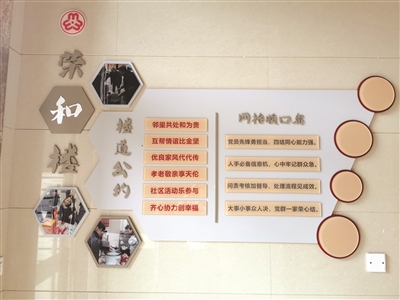 荣和楼
楼道公约
邻里共处和为贵
互帮情谊比金坚
优良家风代代传
孝老敬亲享天伦
社区活动乐参与
齐心协力创幸福
网格顺口溜
党员先锋勇担当，四组同心能力强。
人手必备信息机，心中牢记群众急。
问责考核加督导，处理流程见成效。
大事小事众人决，党群一家荣心结。